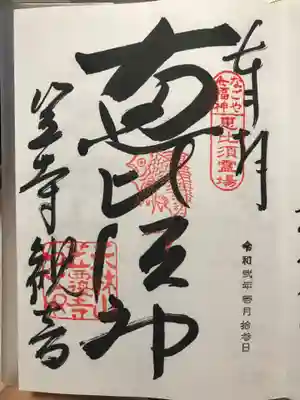 奉拝
なごや
七福神
恵比須霊場
令和弐年壱月拾参日
恵比須
笠寺観音